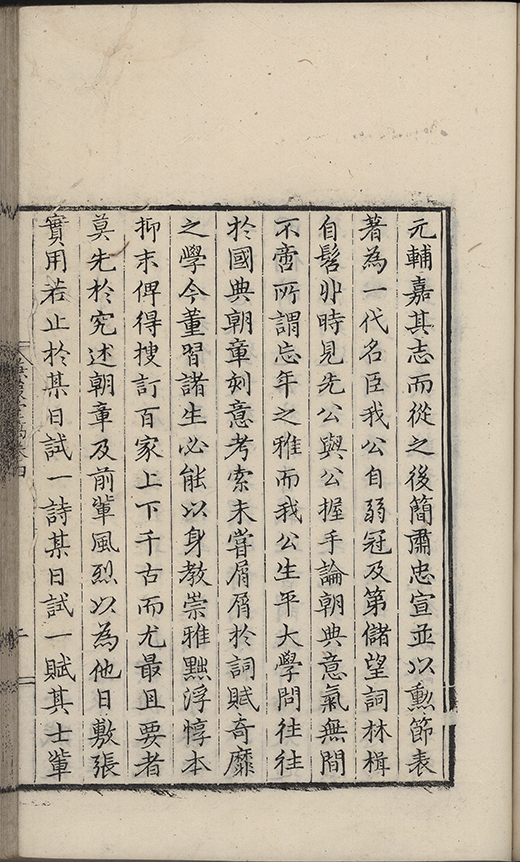 元輔嘉其志而從之後簡肅忠宣並以勲節表
著為一代名臣我公自弱冠及第儲望詞林楫
自髫丱時見先公與公握手論朝典意氣無間
不啻所謂忘年之雅而我公生平大學問往往
於國典朝章刻意考索未嘗屑屑於詞賦奇靡
之學今董習諸生必能以身教崇雅黜浮惇本
抑末俾得搜訂百家上下千古而尤最且要者
莫先於究述朝章及前輩風烈以為他日敷張
實用若止於某日試一詩某日試一賦其士軰